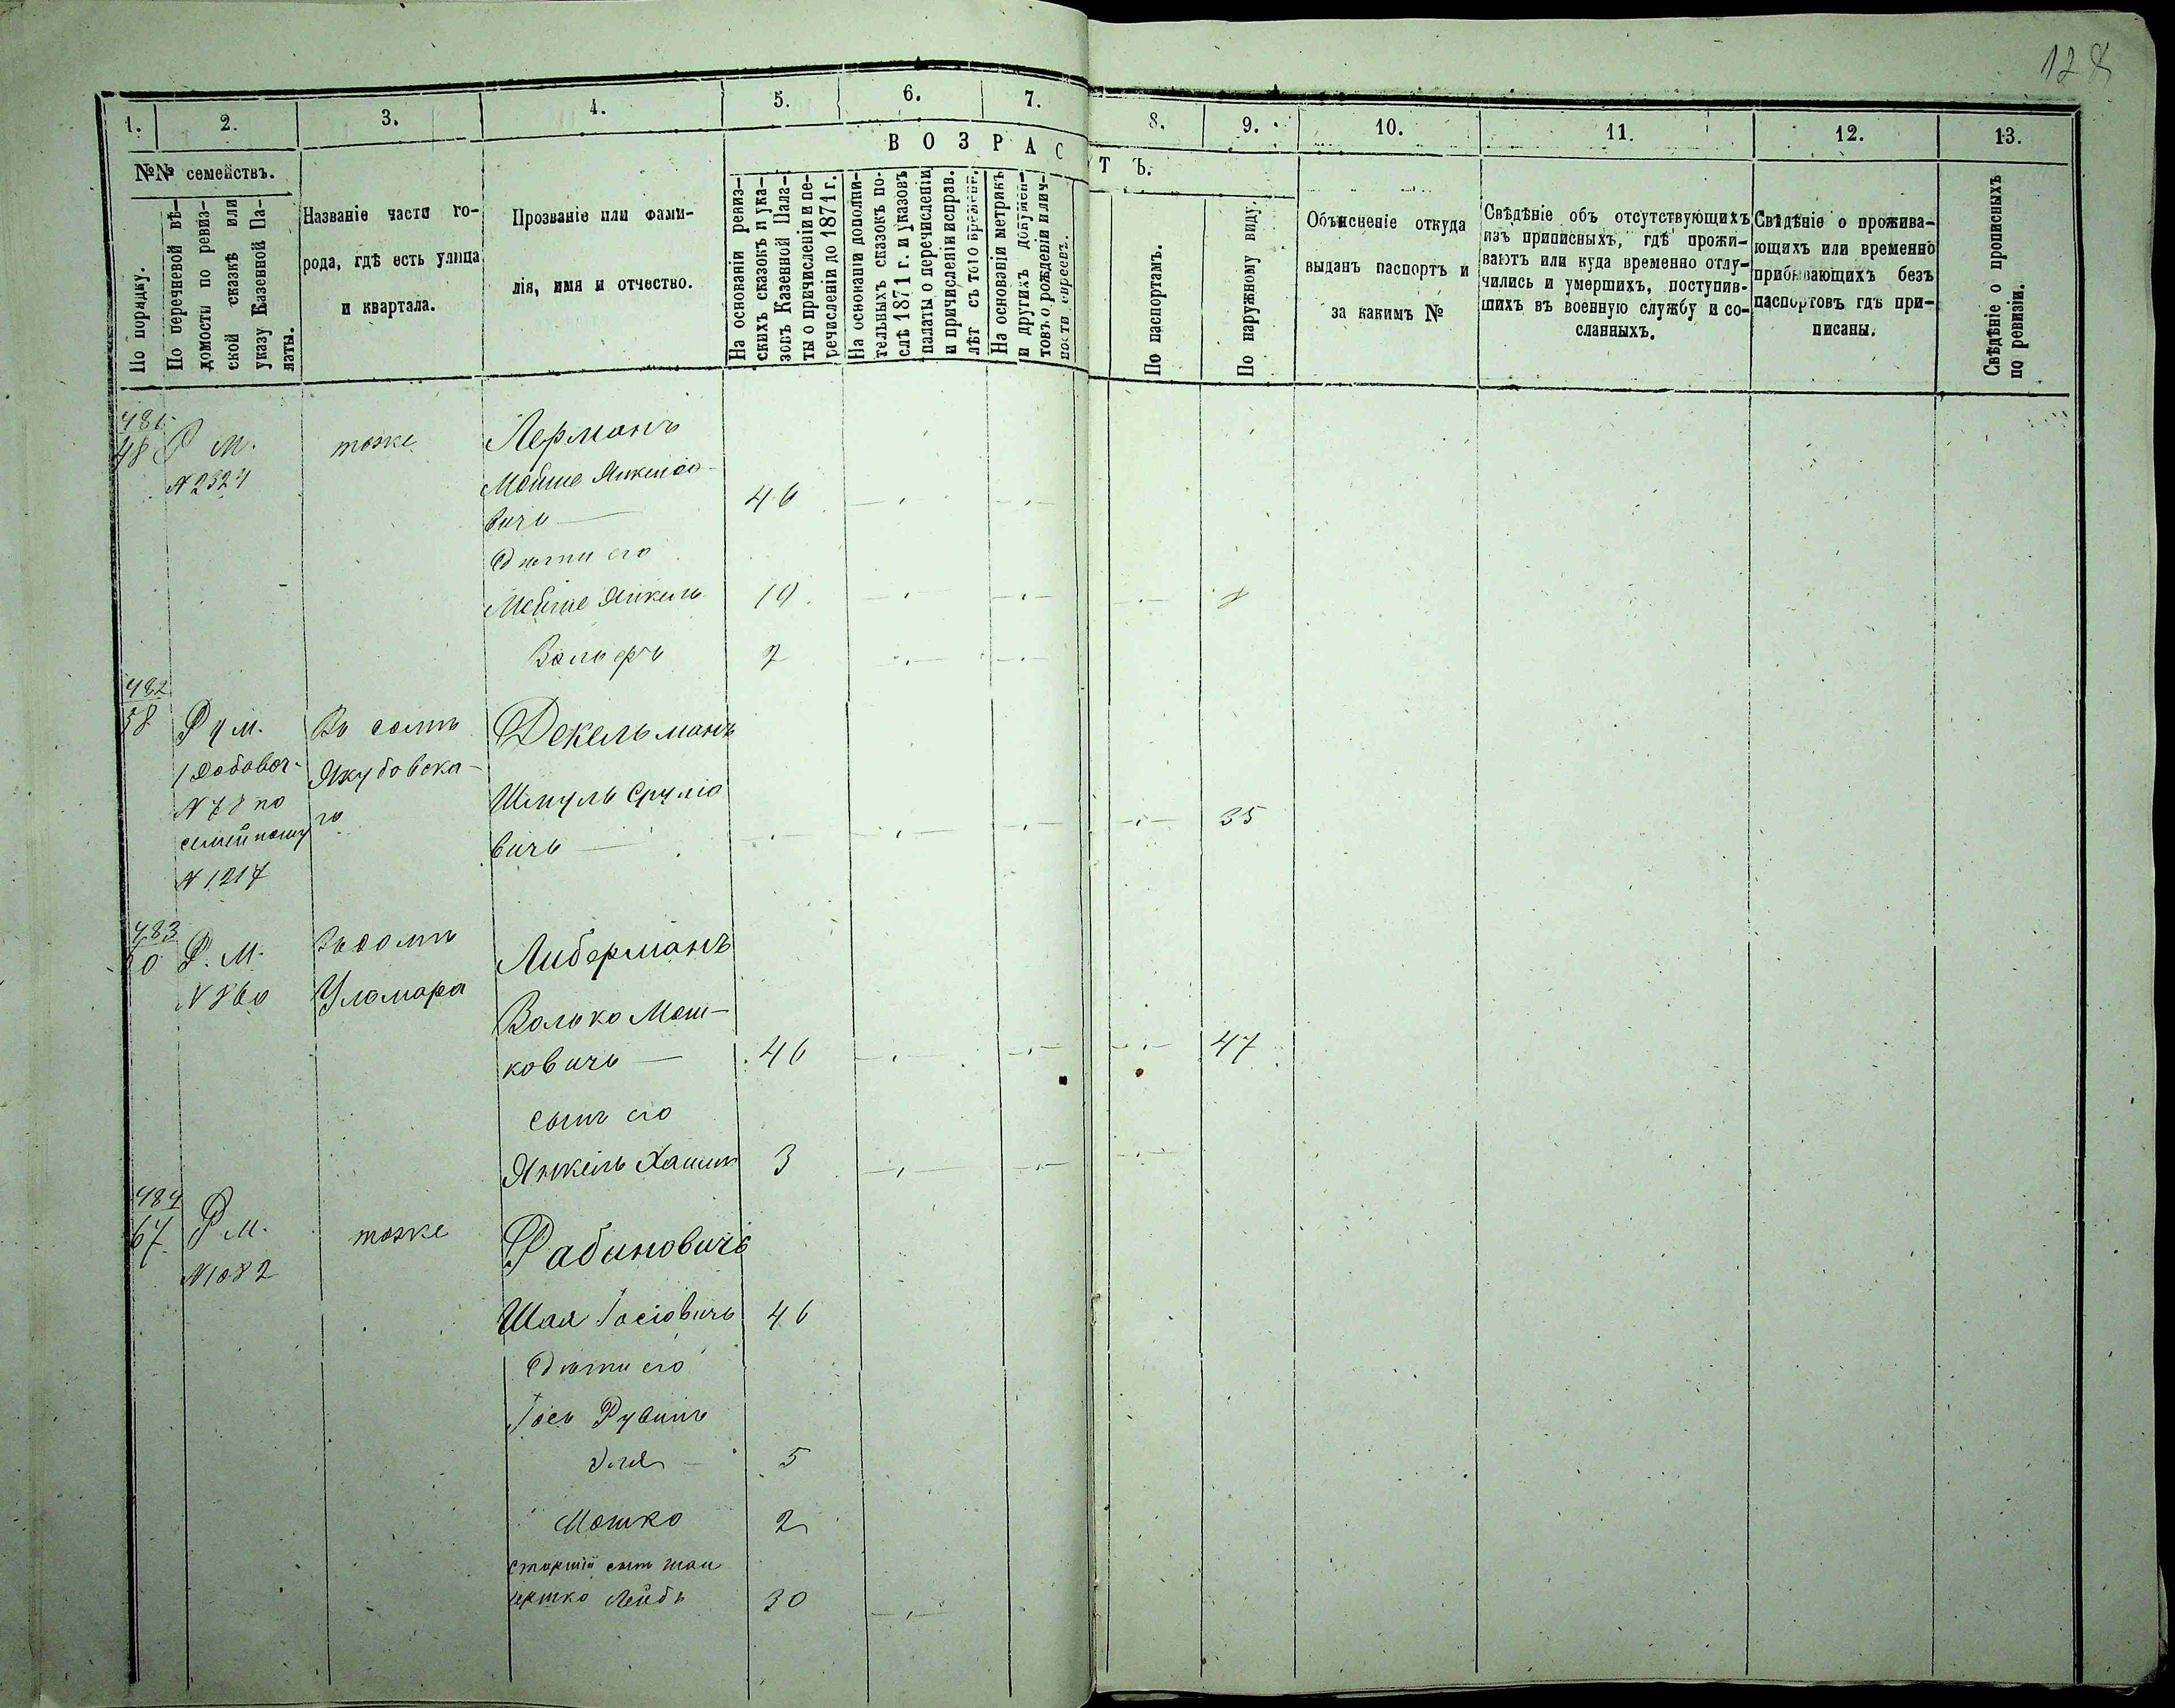 128
1. 2. 3. 4. 5. 6. 7. 8. 9. 10. 11. 12. 13.
№№ семействъ.
По порядку.
По перечневой вѣ-
домости по ревиз-
ской сказкѣ или
указу Казенной Па-
латы.
Названіе части го-
рода, гдѣ есть улица
и квартала.
Прозваніе или фами-
лія, имя и отчество.
ВОЗРАСТЪ.
На основаніи ревиз-
скихъ сказокъ и ука-
зовъ Казенной Пала-
ты о причисленіи и пе-
речисленіи до 1871 г.
На основаніи дополни-
тельныхъ сказокъ по-
слѣ 1871 г. и указовъ
палаты о перечисленіи
и причисленіи исправ.
лѣт съ того времени.
На основаніи метрикъ
и другихъ докумен-
товъ о рожденіи и лич-
ности евреевъ.
По паспортамъ.
По наружному виду.
Объясненіе откуда
выданъ паспортъ и
за какимъ №
Свѣдѣніе объ отсутствующихъ
изъ приписныхъ, гдѣ прожи-
ваютъ или куда временно отлу-
чились и умершихъ, поступив-
шихъ въ военную службу и со-
сланныхъ.
Свѣдѣніе о прожива-
ющихъ или временно
прибывающихъ безъ
паспортовъ гдѣ при-
писаны.
Свѣдѣніе о прописныхъ
по ревизіи.
481
48 Р М. тоже Лерманъ
N 2324 Мойше Янкело-
вичъ 46
Дѣти его
Мойше Янкель 19 8
Вольфъ 2
482
58 Р ч М. Въ домѣ Декельманъ
1 Добавоч- Якубовска-
N 78 по го Шмуль Сруліо
семейному вичъ 35
N 1217
483
60 Р. М. Въ домѣ Либерманъ
N 860 Уломара
Волько Мош-
ковичъ 46 47
сынъ его
Янкель Хаимъ 3
484
67 Р М. тоже Рабиновичъ
N 1082
Шая Іосіовичъ 46
Дѣти его
Іось Рувинъ
Эля 5
Мошко 2
старшій сынъ Шаи
Лейбъ 30